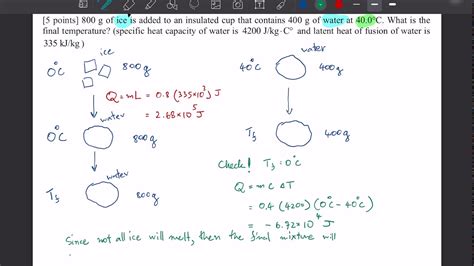 [5 points] 800 g of ice is added to an insulated cup that contains 400 g of water at 40.0°C. What is the
final temperature? (specific heat capacity of water is 4200 J/kg·C° and latent heat of fusion of water is
335 kJ/kg )
ice
water
0°C
800g
40°C
400g
Q = mL = 0.8 (335×10³) J
= 2.68×10⁵ J
water
0°C
800g
Tf
400g
Check! Tf = 0°C
Q = m c ΔT
water
= 0.4 (4200) (0°C - 40°C)
Tf
800g
= - 6.72×10⁴ J
Since not all ice will melt, then the final mixture will